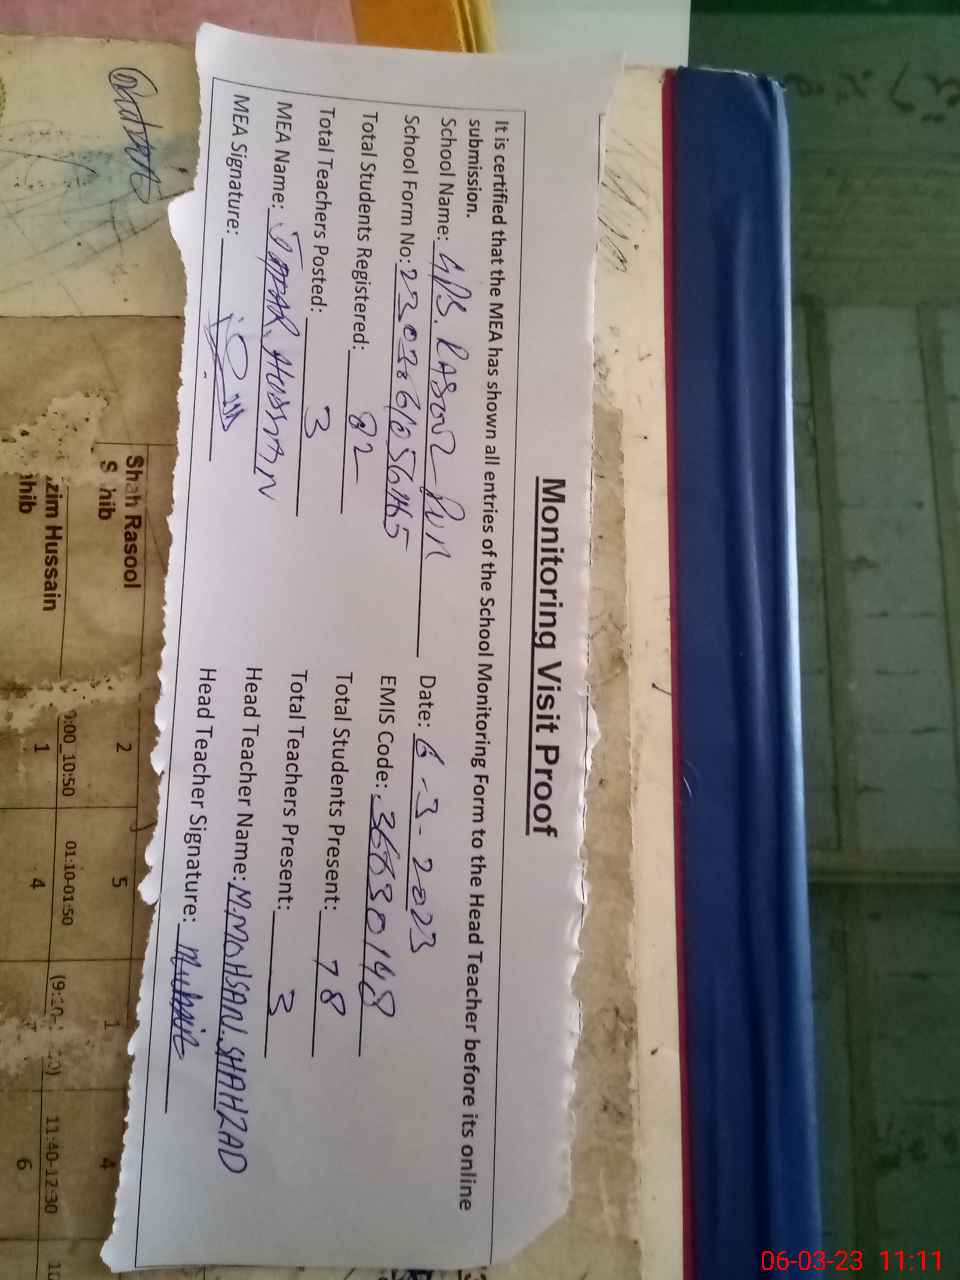 Monitoring Visit Proof
It is certified that the MEA has shown all entries of the School Monitoring Form to the Head Teacher before its online
submission.
School Name: GPS. RASOOL PUR Date: 6-3-2023
School Form No: EMIS Code: 36630148
Total Students Registered: 82 Total Students Present: 78
Total Teachers Posted: 3 Total Teachers Present: 3
MEA Name: HUSSAIN Head Teacher Name: M.MOHSAN.SHAHZAD
MEA Signature: Head Teacher Signature:
Shah Rasool 2 5 1 4
hib
zim Hussain :00_10:50 01:10-01:50 11:40-12:30
hib 1 4 6
06-03-23 11:11